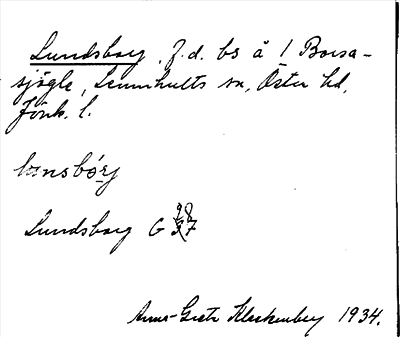 Lundsborg, f.d. bs å 1 Boesa-
sjögle, Lemnhults sn, Öster hd,
Jönk. l.
lunsbórj
Lundsborg G 37
98
Anna-Greta Kleckenberg 1934.